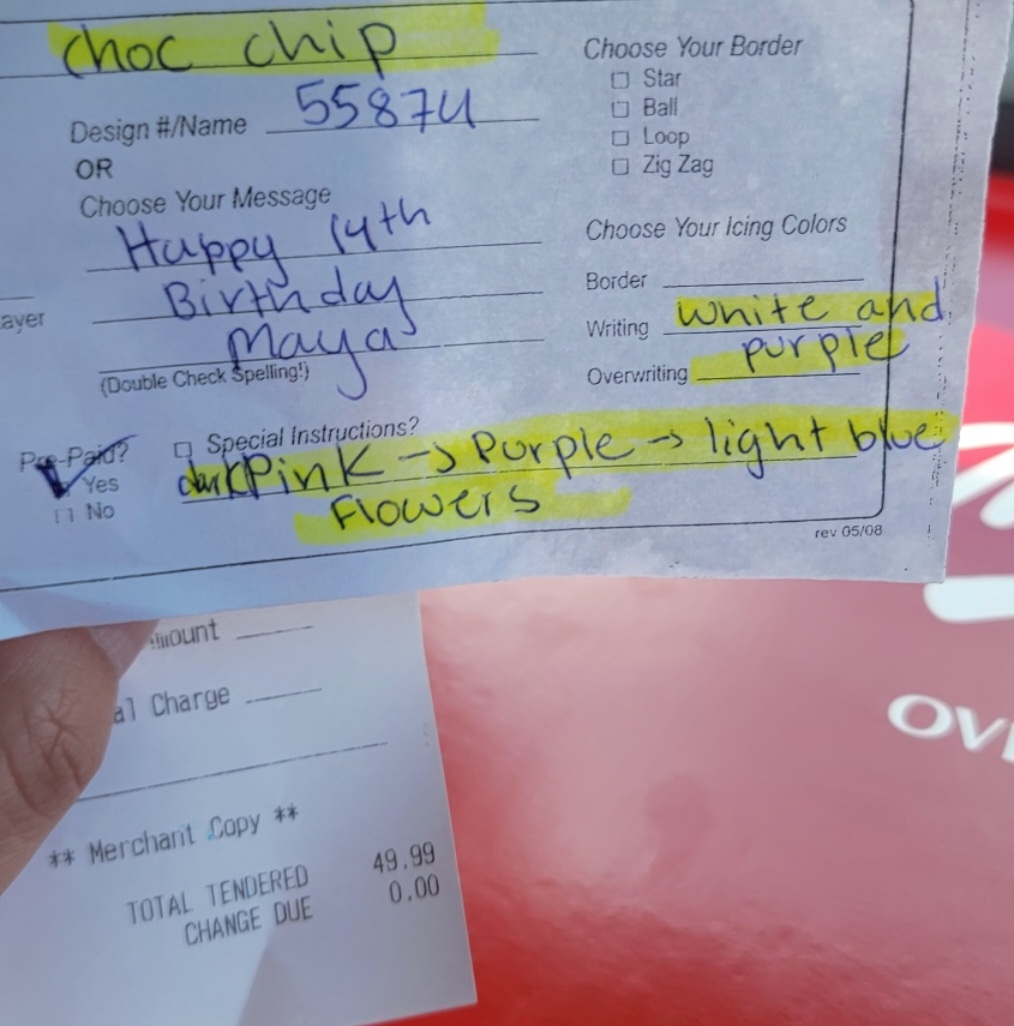 choc chip
Design #/Name 55874
OR
Choose Your Message
Happy 14th
Birthday
Maya
(Double Check Spelling!)
ayer
Pre-Paid?
Yes
No
Choose Your Border
Star
Ball
Loop
Zig Zag
Choose Your Icing Colors
Border
Writing white and
Overwriting purple
Special Instructions?
dark Pink → Purple → light blue
Flowers
rev 05/08
mount
al Charge
** Merchant Copy **
TOTAL TENDERED 49.99
CHANGE DUE 0.00
OV